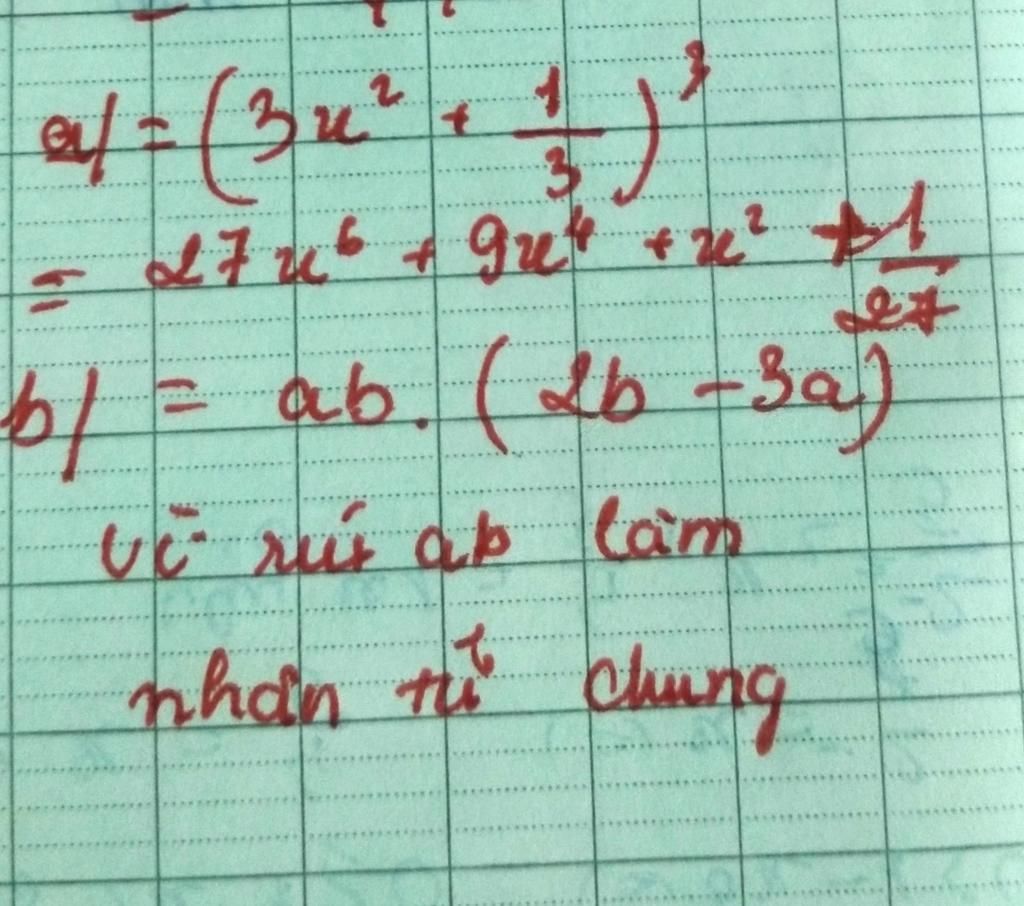 a/ = (3x² + 1/3)³
= 27x⁶ + 9x⁴ + x² + 1/27
b/ = ab. (2b - 3a)
Vì rút ab làm
nhân tử chung